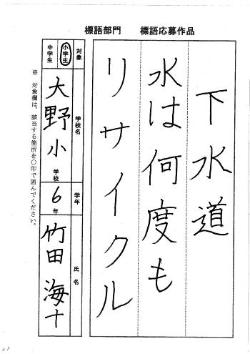 標語部門　標語応募作品
下水道
水は何度も
リサイクル
対象
小学生
中学生
学校名
大野小
学校
学年
6年
氏名
竹田海
※ 対象欄は、該当する箇所を○印で囲んでください。